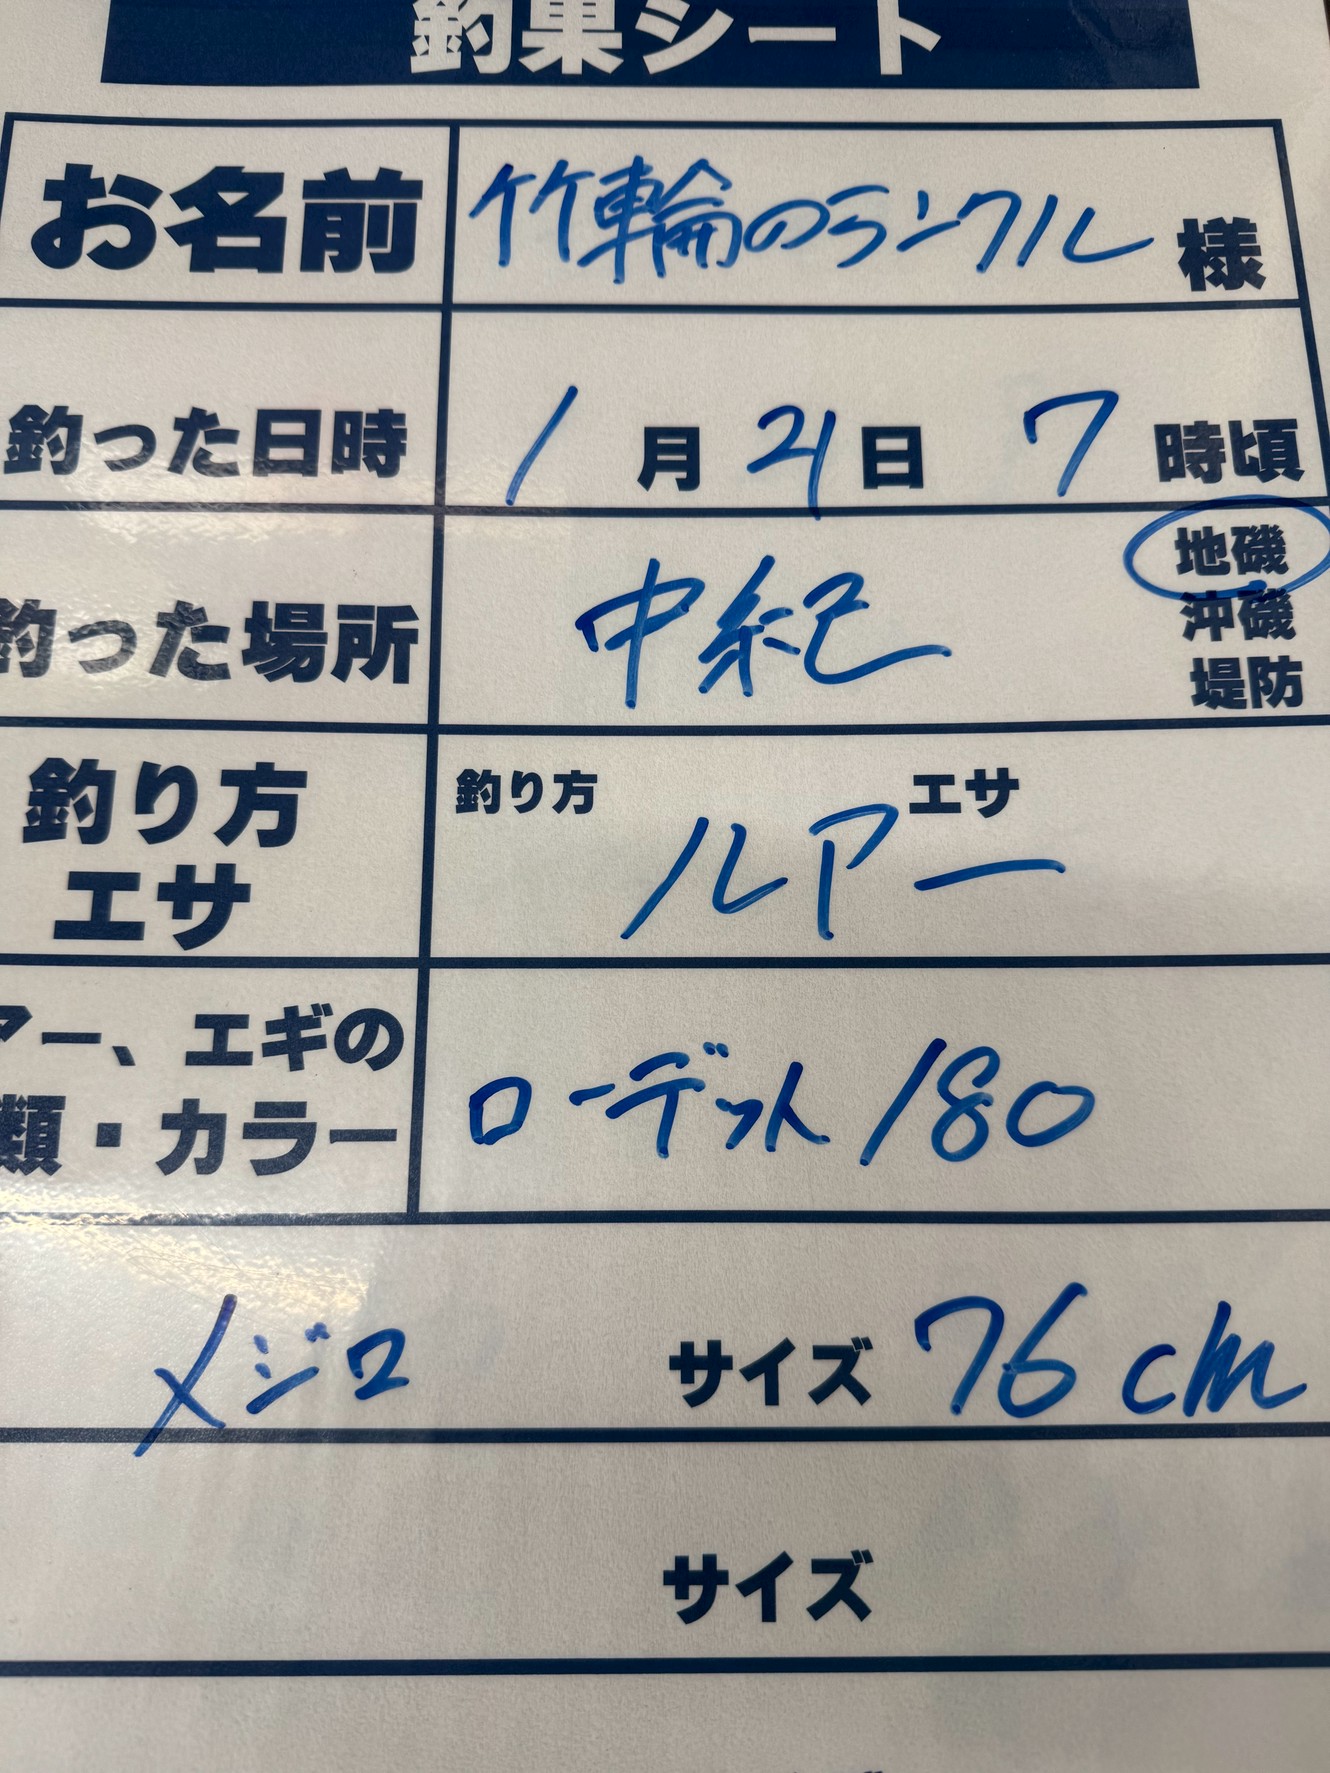 釣果シート
お名前 竹輪のランクル 様
釣った日時 1月21日 7時頃
釣った場所 中紀 地磯
沖磯
堤防
釣り方 釣り方 エサ
エサ ルアー
アー、エギの
類・カラー ローデット180
メジロ サイズ 76cm
サイズ